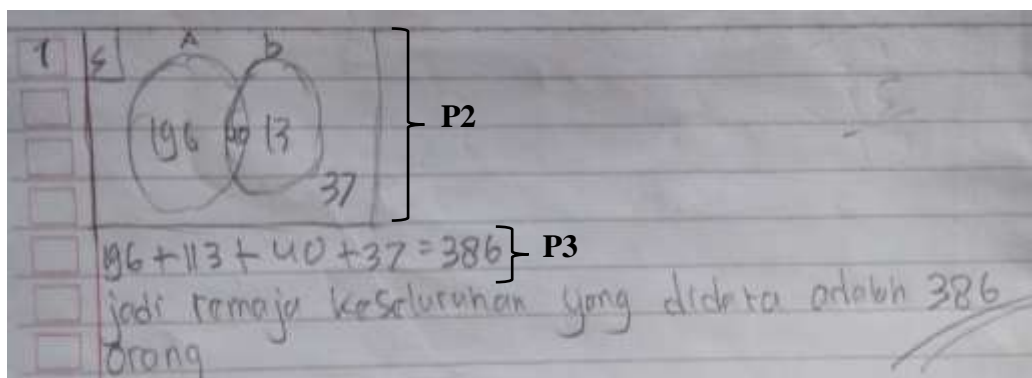 1 S A b
196 40 13 P2
37
196 + 113 + 40 + 37 = 386 P3
jadi remaja keseluruhan yang didata adalah 386
orang